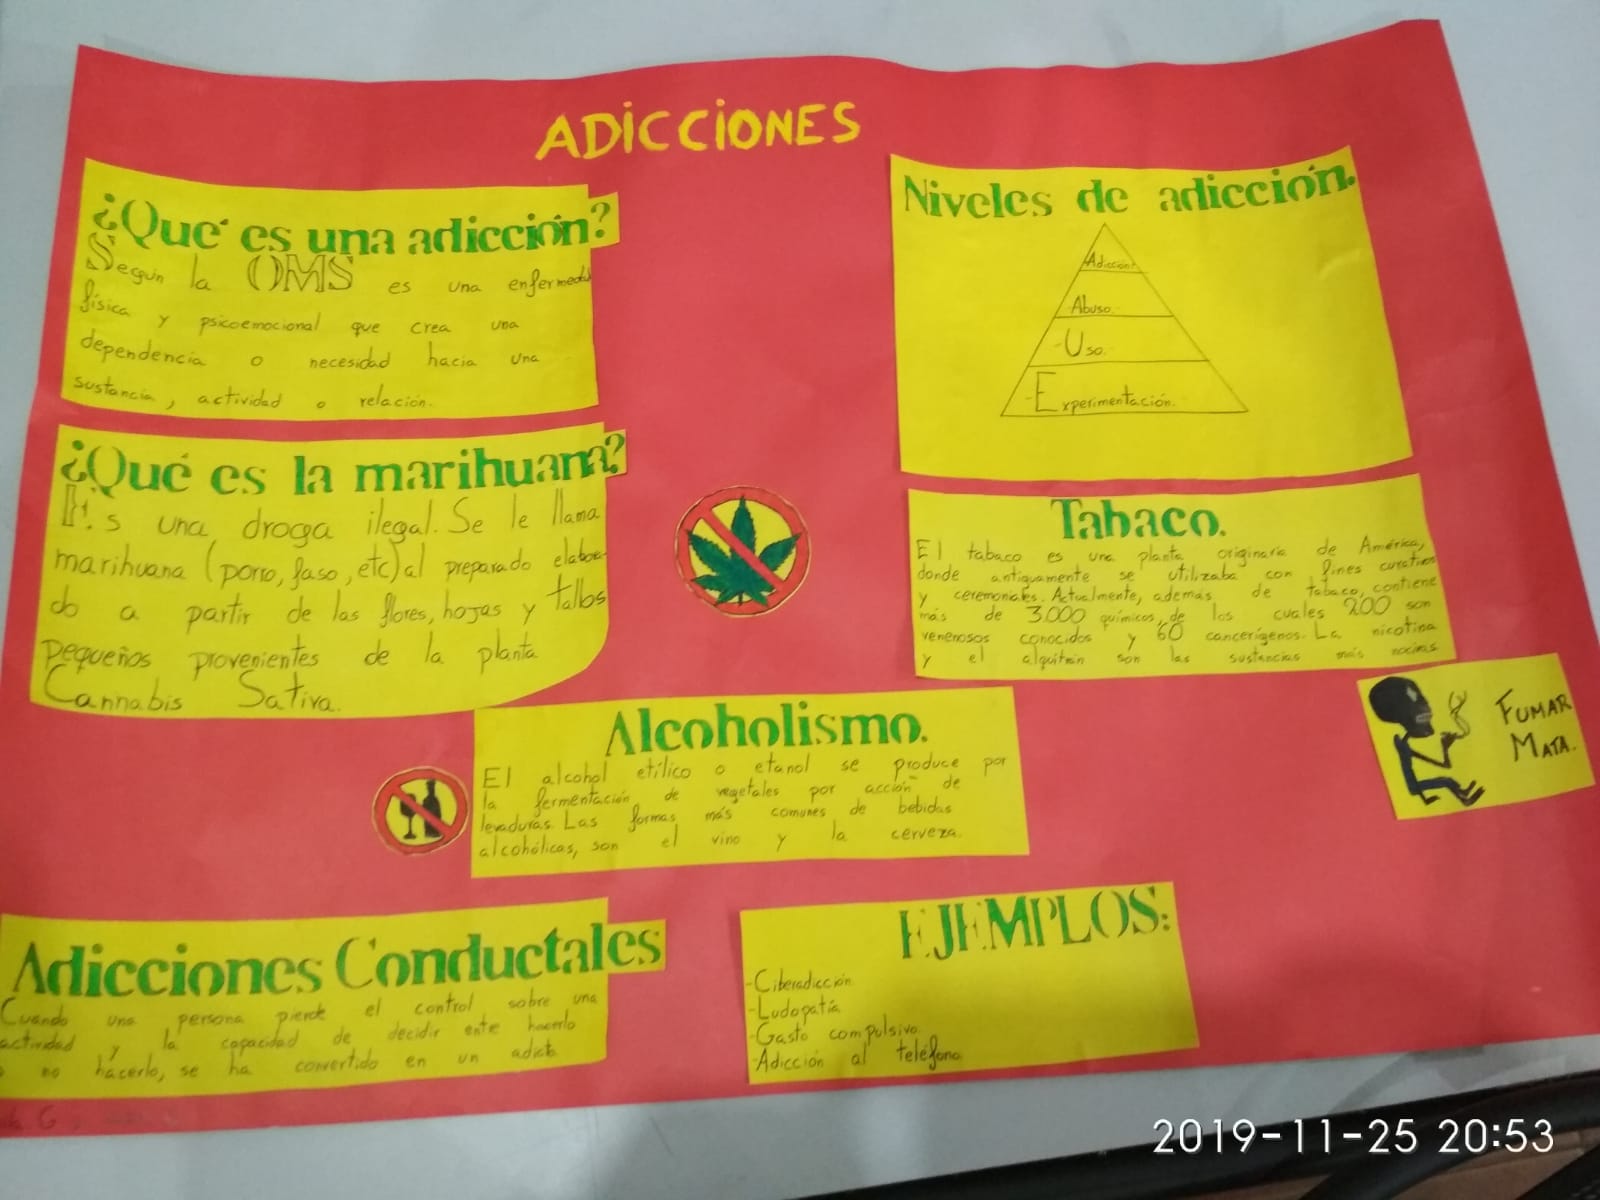 ADICCIONES
¿Qué es una adicción?
Según la OMS es una enfermedad
física y psicoemocional que crea una
dependencia o necesidad hacia una
sustancia, actividad o relación.
¿Qué es la marihuana?
Es una droga ilegal. Se le llama
marihuana (porro, faso, etc) al preparado elabora-
do a partir de las flores, hojas y tallos
pequeños provenientes de la planta
Cannabis Sativa.
Niveles de adicción.
Adicción.
Abuso.
-Uso.
-Experimentación.
Tabaco.
El tabaco es una planta originaria de América,
donde antiguamente se utilizaba con fines curativos
y ceremoniales. Actualmente, además de tabaco, contiene
más de 3.000 químicos, de los cuales 200 son
venenosos conocidos y 60 cancerígenos. La nicotina
y el alquitrán son las sustancias más nocivas.
FUMAR
MATA.
Alcoholismo.
El alcohol etílico o etanol se produce por
la fermentación de vegetales por acción de
levaduras. Las formas más comunes de bebidas
alcohólicas, son el vino y la cerveza.
Adicciones Conductales
Cuando una persona pierde el control sobre una
actividad y la capacidad de decidir ente hacerlo
o no hacerlo, se ha convertido en un adicto
EJEMPLOS:
-Ciberadicción
-Ludopatía
-Gasto compulsivo.
-Adicción al teléfono
G
2019-11-25 20:53